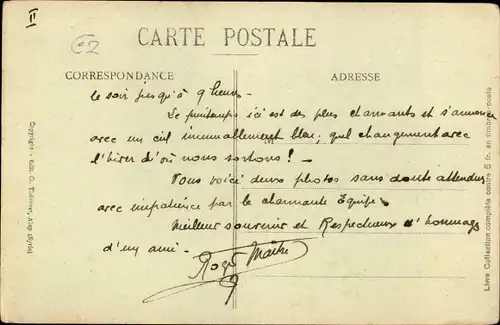 CARTE POSTALE
CORRESPONDANCE
ADRESSE
le soir jusqu'à 9 heures -
Le printemps ici est des plus charmants et s'annonce
avec un ciel immuablement bleu, quel changement avec
l'hiver d'où nous sortons ! -
Vous voici deux photos sans doute attendues
avec impatience par la charmante Equipe.
Meilleur souvenir et Respectueux d'hommage
d'un ami -
Roger Maitre
II
Livre Collection complète contre 5 fr. en timbres-poste